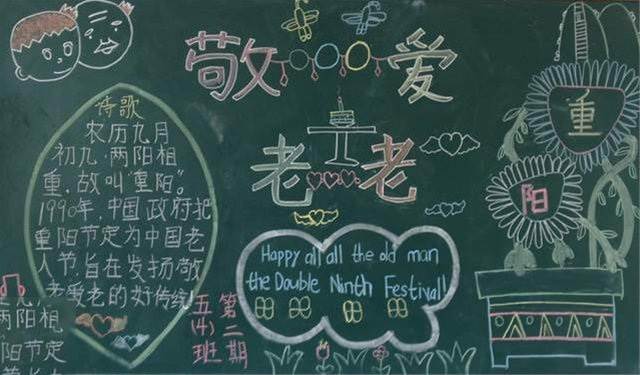 敬爱
老老
重
阳
诗歌
农历九月
初九,两阳相
重,故叫"重阳"。
1990年,中国政府把
重阳节定为中国老
人节,旨在发扬敬
老爱老的好传统!
Happy all all the old man
the Double Ninth Festival!
第二期
五(4)班
两阳相
阳节定